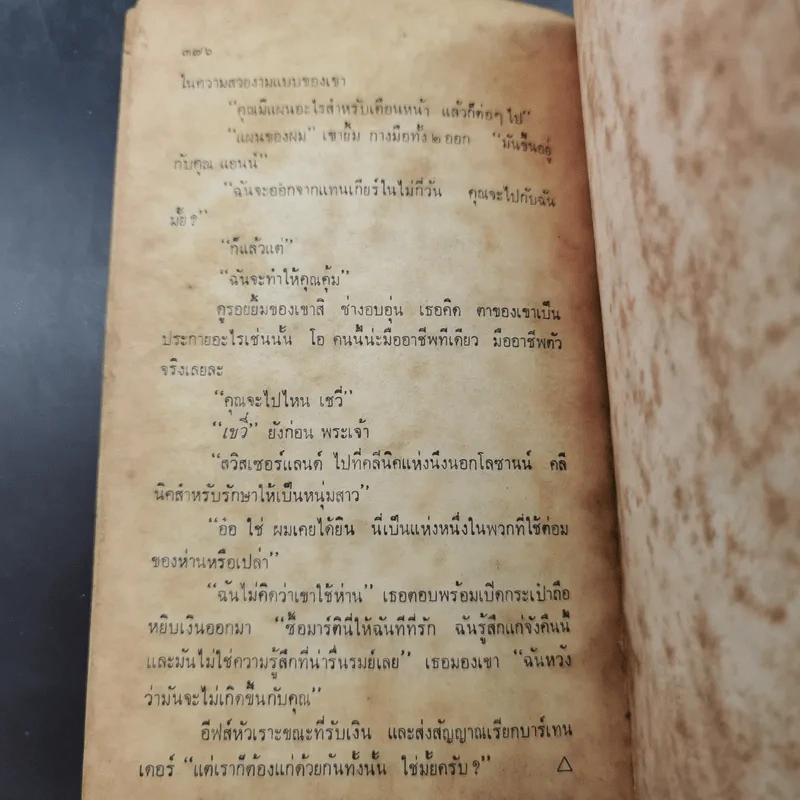 ๓๗๖
ในความสวยงามแบบของเขา
“คุณมีแผนอะไรสำหรับเดือนหน้า แล้วก็ต่อๆ ไป”
“แผนของผม” เขายิ้ม กางมือทั้ง ๒ ออก “มันขึ้นอยู่
กับคุณ แอนน์”
“ฉันจะออกจากแทนเกียร์ในไม่กี่วัน คุณจะไปกับฉัน
มั้ย ?”
“ก็แล้วแต่”
“ฉันจะทำให้คุณคุ้ม”
ดูรอยยิ้มของเขาสิ ช่างอบอุ่น เธอคิด ตาของเขาเป็น
ประกายอะไรเช่นนั้น โอ คนนี้น่ะมืออาชีพทีเดียว มืออาชีพตัว
จริงเลยละ
“คุณจะไปไหน เชวี่”
“เชวี่” ยังก่อน พระเจ้า
“สวิสเซอร์แลนด์ ไปที่คลีนิคแห่งนึงนอกโลซานน์ คลี
นิคสำหรับรักษาให้เป็นหนุ่มสาว”
“อ๋อ ใช่ ผมเคยได้ยิน นี่เป็นแห่งหนึ่งในพวกที่ใช้ต่อม
ของห่านหรือเปล่า”
“ฉันไม่คิดว่าเขาใช้ห่าน” เธอตอบพร้อมเปิดกระเป๋าถือ
หยิบเงินออกมา “ซื้อมาร์ตินี่ให้ฉันทีที่รัก ฉันรู้สึกแก่จังคืนนี้
และมันไม่ใช่ความรู้สึกที่น่ารื่นรมย์เลย” เธอมองเขา “ฉันหวัง
ว่ามันจะไม่เกิดขึ้นกับคุณ”
อีฟส์หัวเราะขณะที่รับเงิน และส่งสัญญาณเรียกบาร์เทน
เดอร์ “แต่เราก็ต้องแก่ด้วยกันทั้งนั้น ใช่มั้ยครับ ?” △